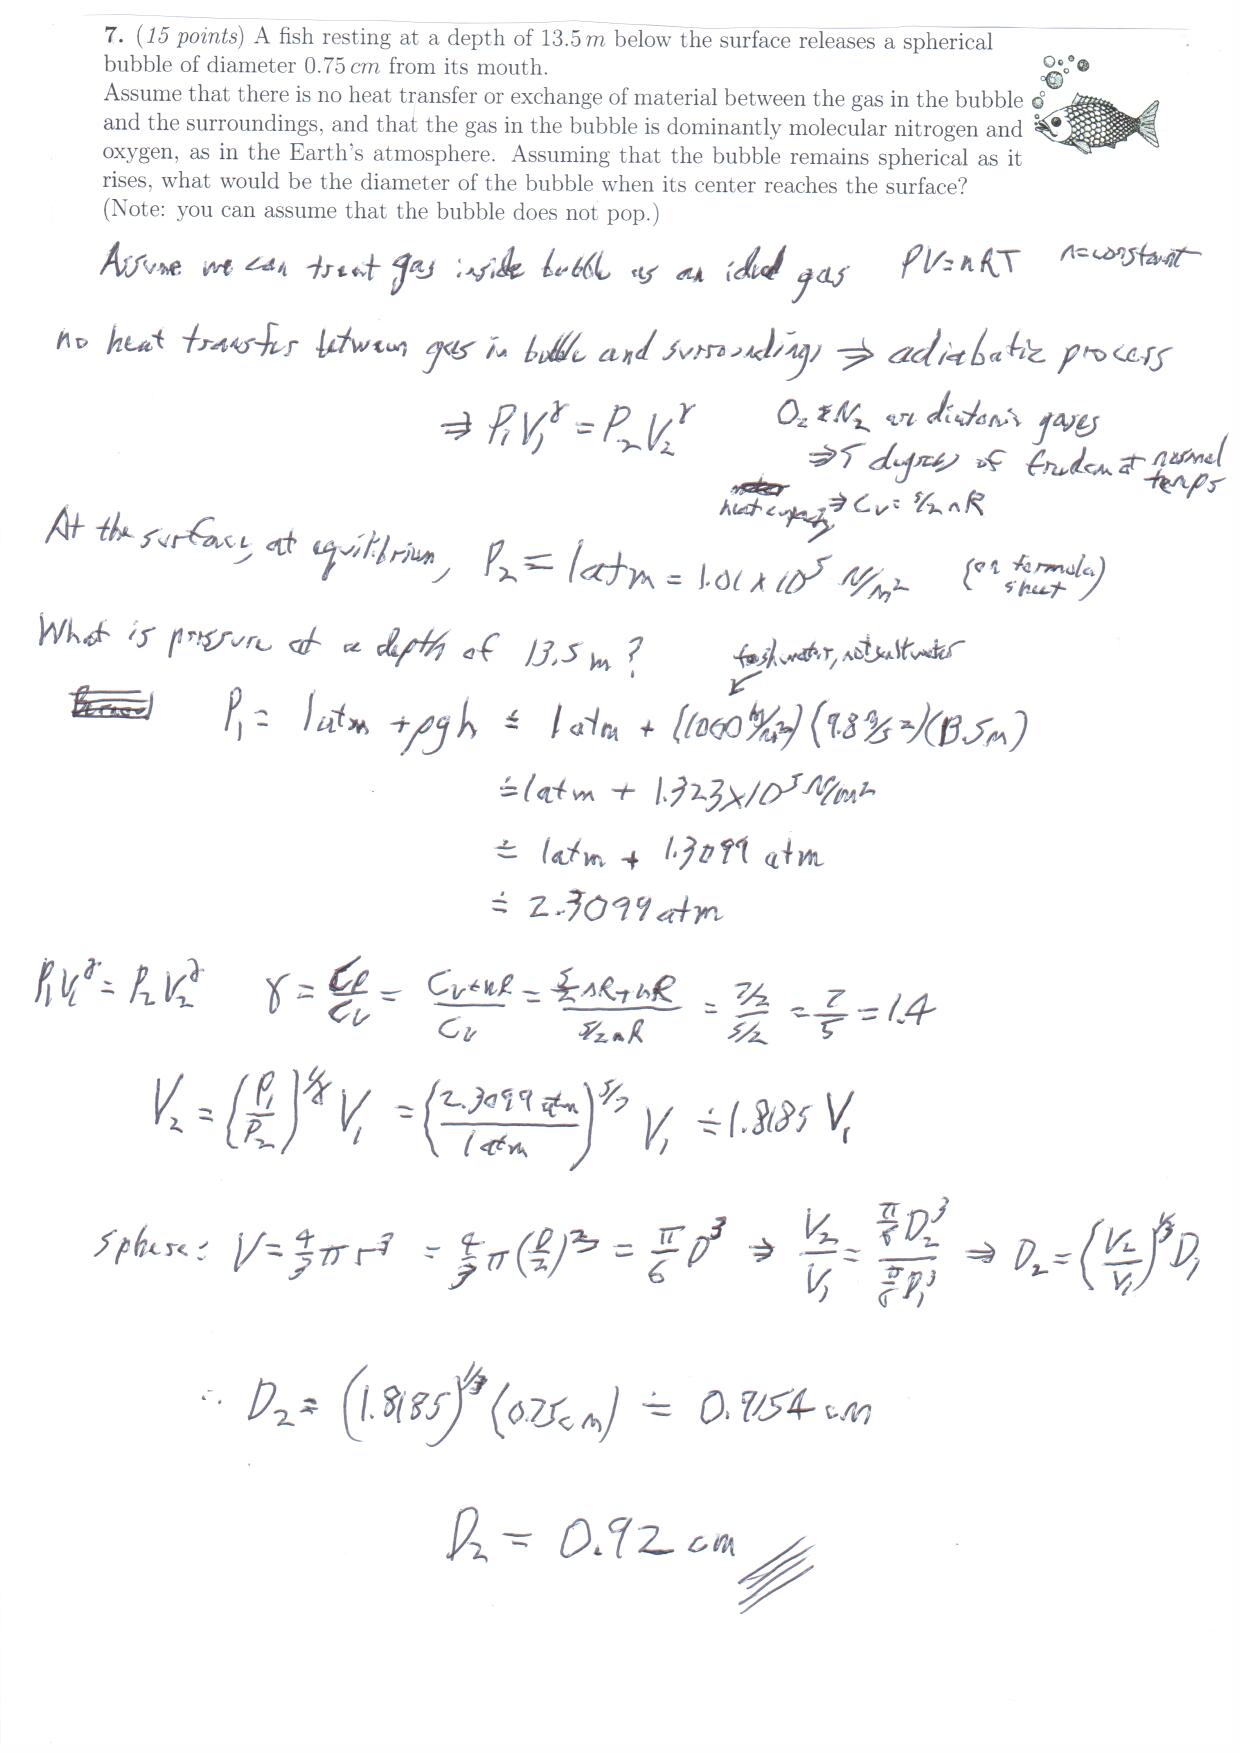 7. (15 points) A fish resting at a depth of 13.5 m below the surface releases a spherical
bubble of diameter 0.75 cm from its mouth.
Assume that there is no heat transfer or exchange of material between the gas in the bubble
and the surroundings, and that the gas in the bubble is dominantly molecular nitrogen and
oxygen, as in the Earth's atmosphere. Assuming that the bubble remains spherical as it
rises, what would be the diameter of the bubble when its center reaches the surface?
(Note: you can assume that the bubble does not pop.)
Assume we can treat gas inside bubble as an ideal gas PV=nRT n=constant
no heat transfer between gas in bubble and surroundings ⇒ adiabatic process
⇒ P₁V₁^γ = P₂V₂^γ O₂ & N₂ are diatomic gases
⇒ 5 degrees of freedom at normal temps
heat capacity ⇒ Cv = 5/2 nR
At the surface, at equilibrium, P₂ = 1 atm = 1.01 x 10⁵ N/m² (on formula sheet)
What is pressure at a depth of 13.5 m? fresh water, not salt water
P₁ = 1 atm + ρgh ≐ 1 atm + (1000 kg/m³)(9.8 m/s²)(13.5m)
≐ 1 atm + 1.323x10⁵ N/m²
≐ 1 atm + 1.3099 atm
≐ 2.3099 atm
P₁V₁^γ = P₂V₂^γ γ = Cp/Cv = (Cv+nR)/Cv = (5/2 nR+nR)/(5/2 nR) = (7/2)/(5/2) = 7/5 = 1.4
V₂ = (P₁/P₂)^(1/γ) V₁ = (2.3099 atm/1 atm)^(5/7) V₁ ≐ 1.8185 V₁
sphere: V = 4/3 π r³ = 4/3 π (D/2)³ = π/6 D³ ⇒ V₂/V₁ = (π/6 D₂³)/(π/6 D₁³) ⇒ D₂ = (V₂/V₁)^(1/3) D₁
∴ D₂ = (1.8185)^(1/3) (0.75cm) ≐ 0.9154 cm
D₂ = 0.92 cm